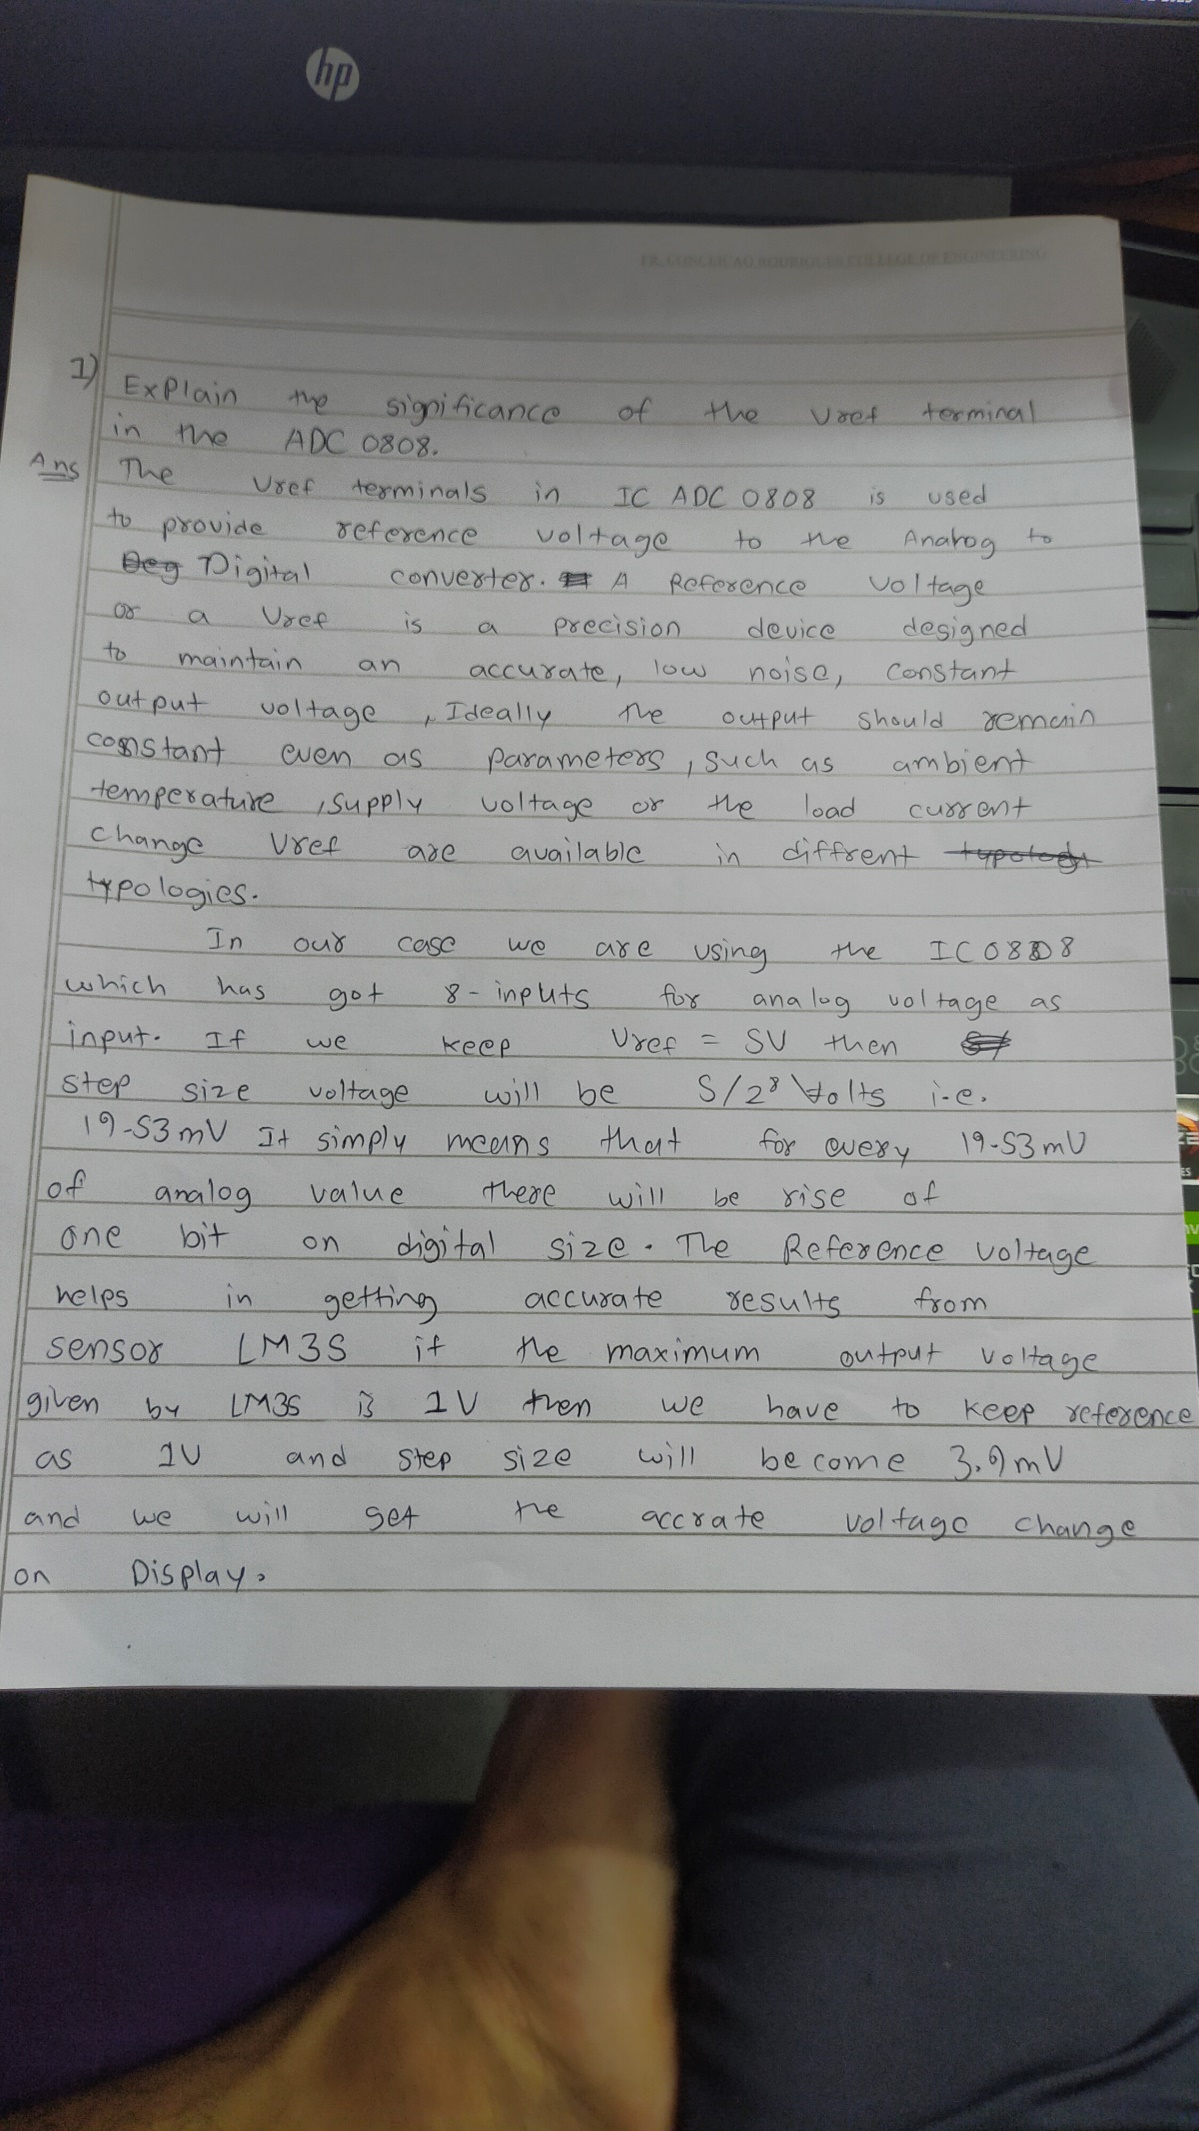 hp
FR. CONCEICAO RODRIGUES COLLEGE OF ENGINEERING
1) Explain the significance of the Vref terminal
in the ADC 0808.
Ans The Vref terminals in IC ADC 0808 is used
to provide reference voltage to the Analog to
Deg Digital converter. A Reference voltage
or a Vref is a precision device designed
to maintain an accurate, low noise, constant
output voltage , Ideally the output should remain
constant even as parameters , such as ambient
temperature , supply voltage or the load current
change Vref are available in diffrent typology
typologies.
In our case we are using the IC 0808
which has got 8-inputs for analog voltage as
input. If we keep Vref = 5V then
step size voltage will be 5/2⁸ Volts i.e.
19.53 mV It simply means that for every 19.53 mV
of analog value there will be rise of
one bit on digital size. The Reference voltage
helps in getting accurate results from
sensor LM35 if the maximum output voltage
given by LM35 is 1V then we have to keep reference
as 1V and step size will become 3.9 mV
and we will get the accrate voltage change
on Display.